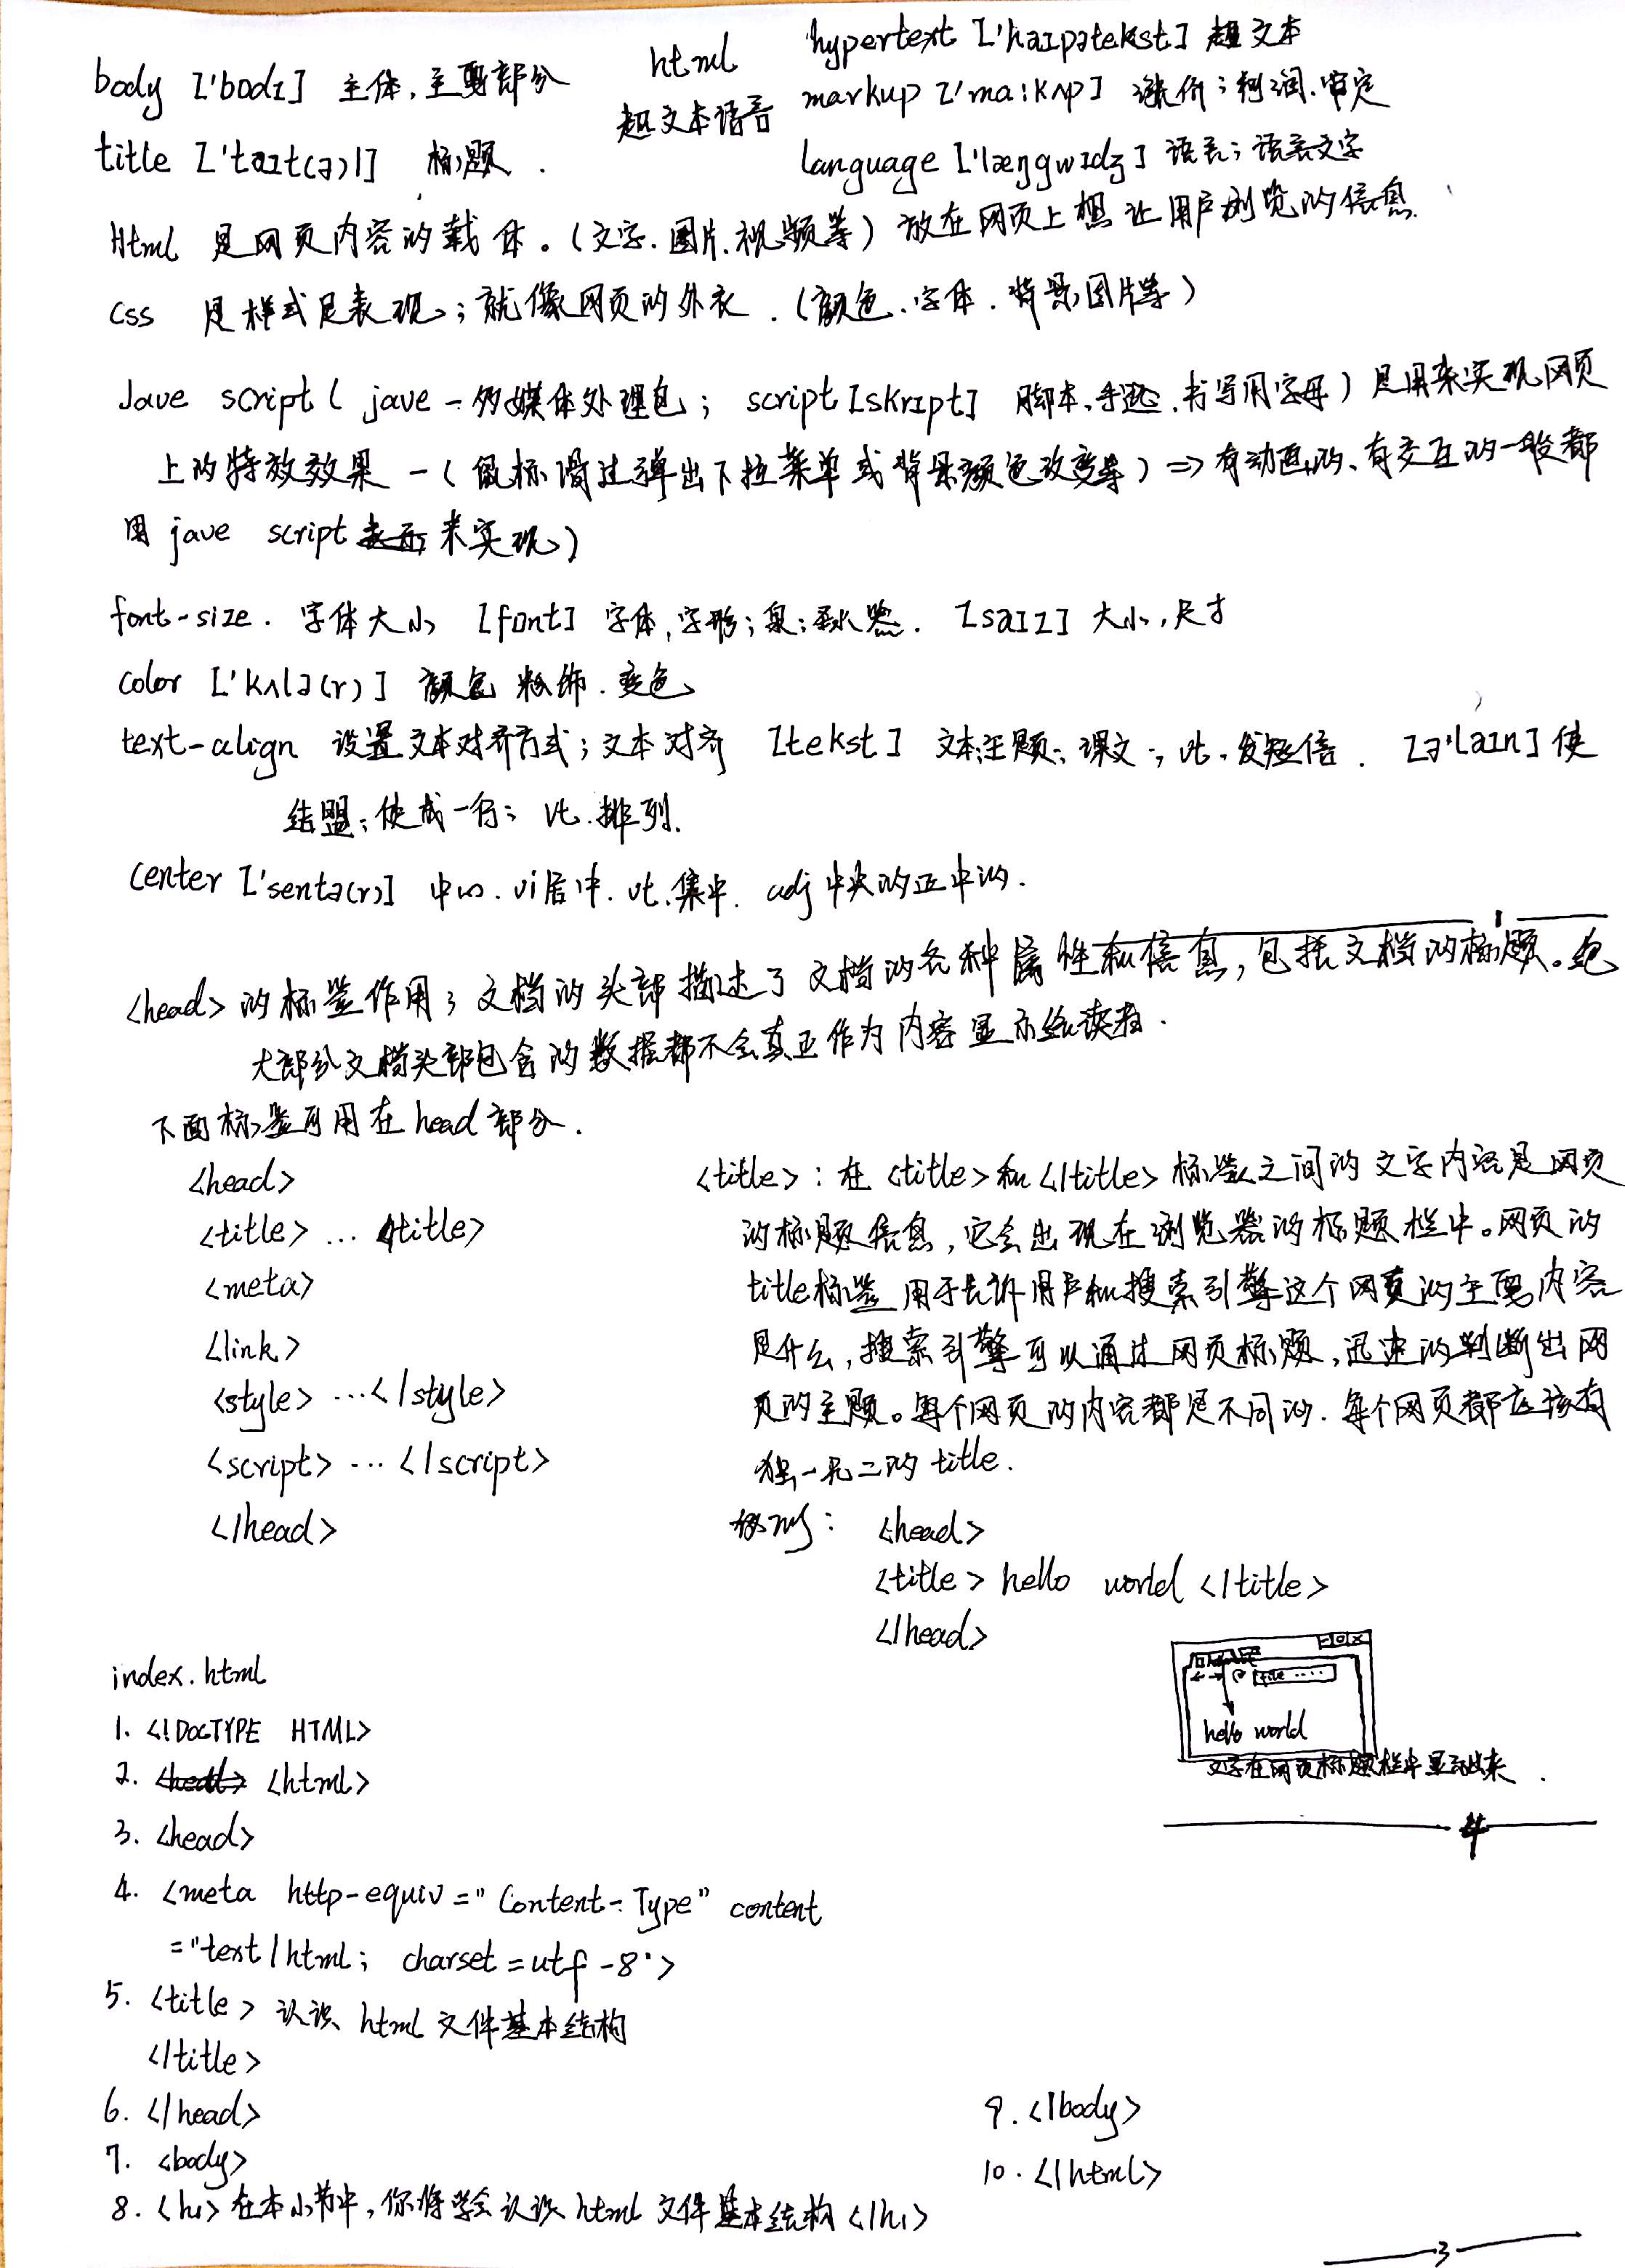 body ['bɒdɪ] 主体,主要部分
title ['taɪt(ə)l] 标题.
html
超文本语言
hypertext ['haɪpətekst] 超文本
markup ['mɑːkʌp] 涨价;利润.审定
language ['læŋgwɪdʒ] 语言;语言文字
Html 是网页内容的载体。(文字.图片.视频等)放在网页上想让用户浏览的信息.
Css 是样式是表现;就像网页的外衣.(颜色.字体.背景图片等)
Jave script( jave-多媒体处理包; script [skrɪpt] 脚本,手迹.书写用字母)是用来实现网页
上的特效效果 -(鼠标滑过弹出下拉菜单或背景颜色改变等)=>有动画的、有交互的一般都
用 jave script 来实现)
font-size. 字体大小 [fɒnt] 字体,字形;泉; [saɪz] 大小,尺寸
color ['kʌlə(r)] 颜色 粉饰.变色
text-align 设置文本对齐方式;文本对齐 [tekst] 文本;主题;课文; vt.发短信. [ə'laɪn] 使
结盟;使成一行; vt.排列.
center ['sentə(r)] 中心. vi居中. vt.集中. adj 中央的正中的.
1
<head>的标签作用; 文档的头部描述了文档的各种属性和信息,包括文档的标题。绝
大部分文档头部包含的数据都不会真正作为内容显示给读者.
下面标签可用在head部分.
<head>
<title> ... </title>
<meta>
<link>
<style> ...</style>
<script> ... </script>
</head>
<title>: 在<title>和</title>标签之间的文字内容是网页
的标题信息,它会出现在浏览器的标题栏中。网页的
title标签用于告诉用户和搜索引擎这个网页的主要内容
是什么,搜索引擎可以通过网页标题,迅速的判断出网
页的主题。每个网页的内容都是不同的.每个网页都应该有
独一无二的title.
例: <head>
<title> hello world </title>
</head>
title ....
hello world
文字在网页标题栏中显示出来.
4
index.html
1. <!DOCTYPE HTML>
2. <head> <html>
3. <head>
4. <meta http-equiv="Content-Type" content
="text/html; charset=utf-8">
5. <title> 认识 html 文件基本结构
</title>
6. </head>
7. <body>
8. <h1>在本小节中,你将学会认识html 文件基本结构</h1>
9. </body>
10. </html>
3